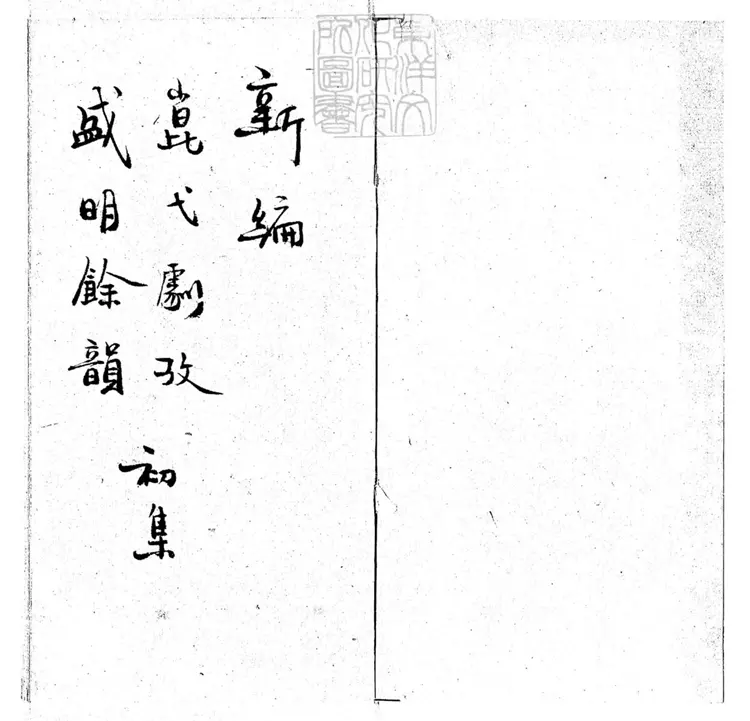 新編
崑弋劇攷
盛明餘韻
初集
東洋文
化研究
所圖書